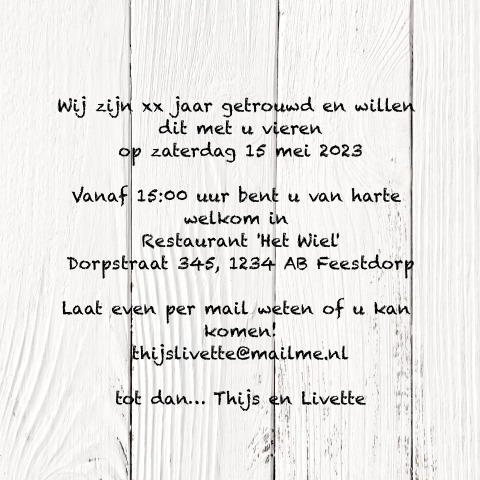 Wij zijn xx jaar getrouwd en willen
dit met u vieren
op zaterdag 15 mei 2023
Vanaf 15:00 uur bent u van harte
welkom in
Restaurant 'Het Wiel'
Dorpstraat 345, 1234 AB Feestdorp
Laat even per mail weten of u kan
komen!
thijslivette@mailme.nl
tot dan... Thijs en Livette